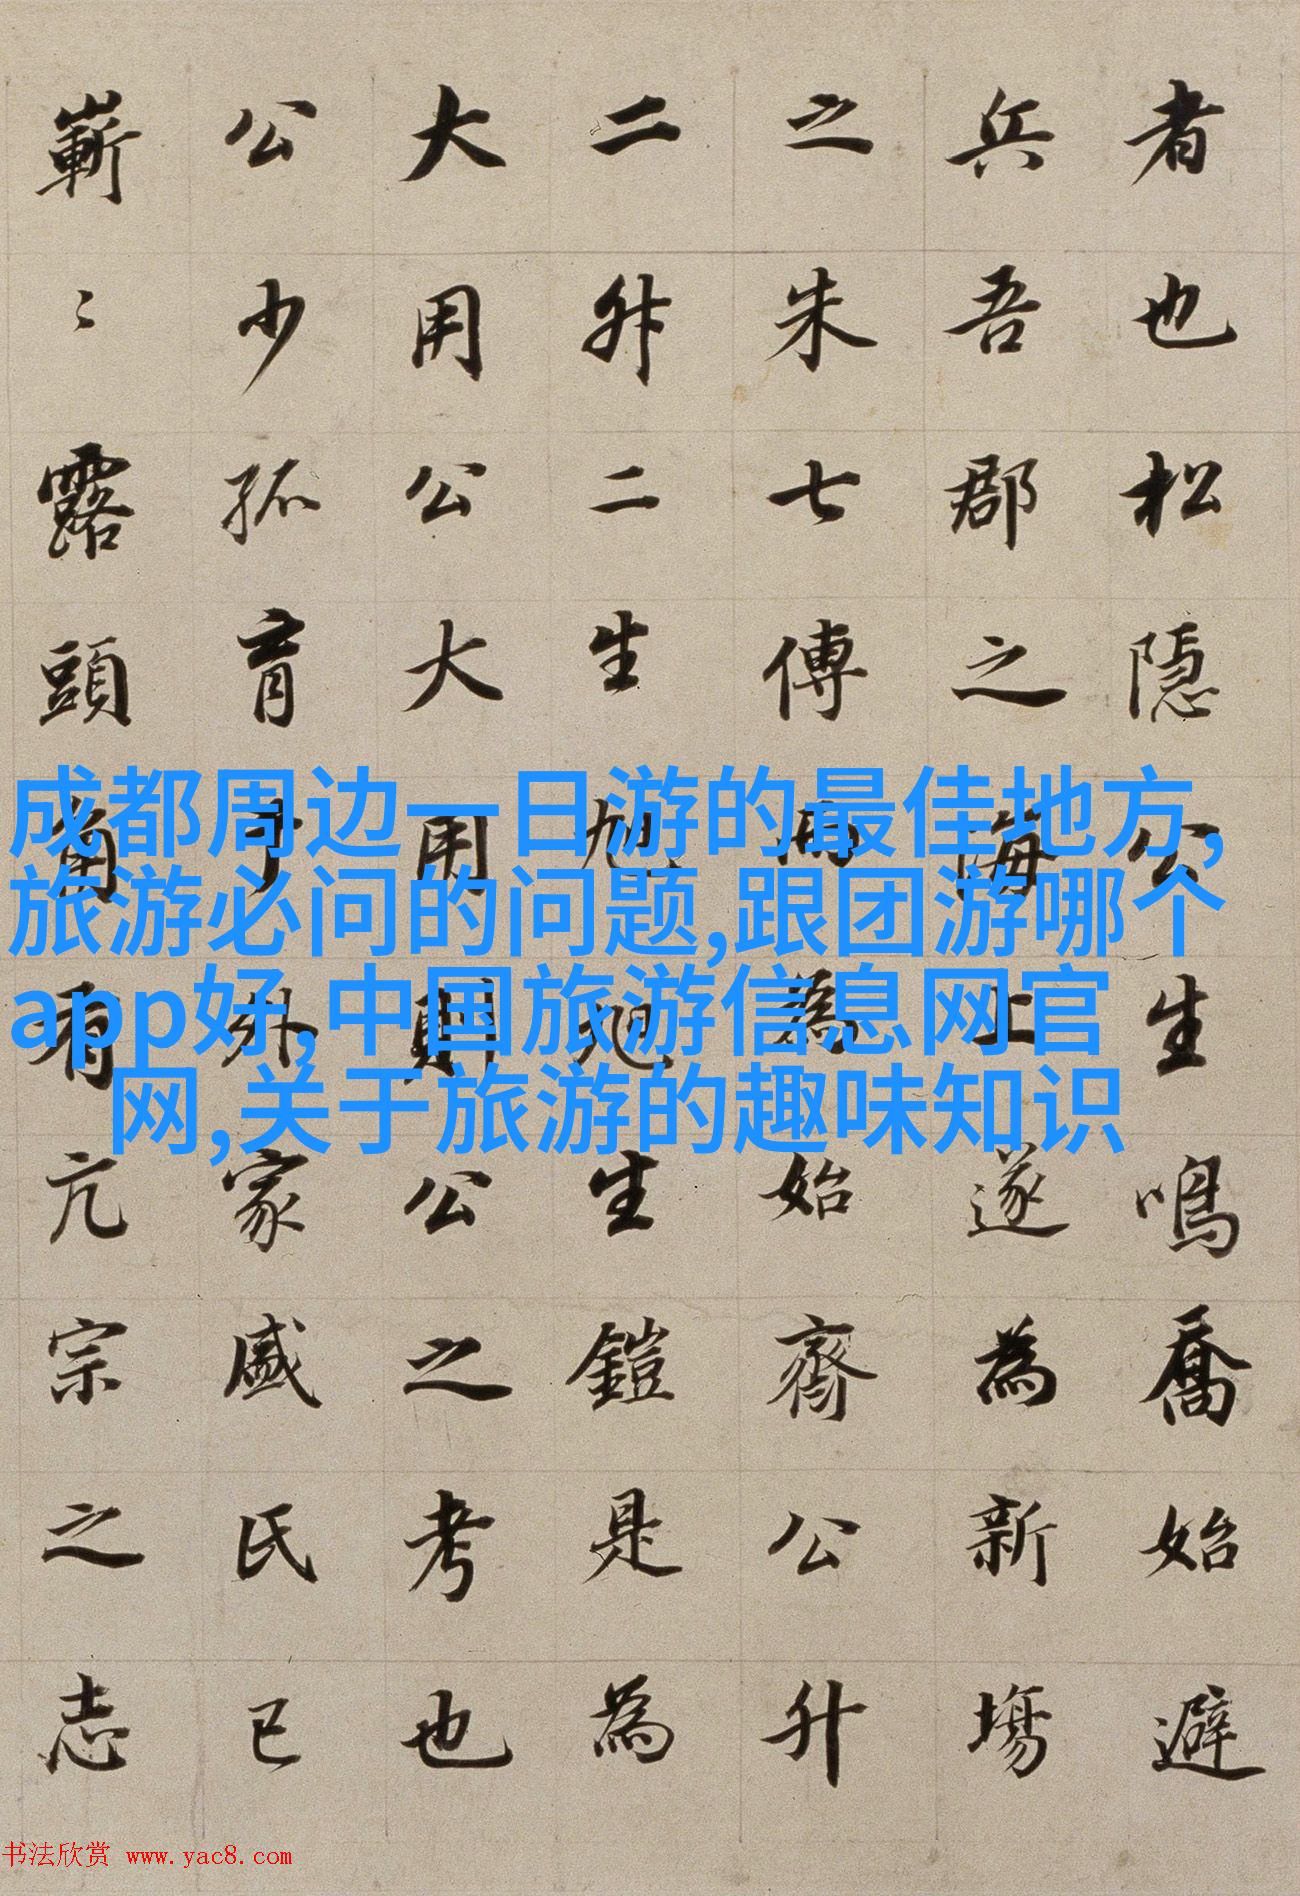 者也松隱公生鳴喬始避
兵吾郡之海上遂為新塲
之朱七傳為始齊公升
二升二生旭旭生鎧是為
大用公大用則公之考也
公少孤育于外家戚氏已
嶄〻露頭角有亢宗之志
成都周边一日游的最佳地方,
旅游必问的问题,跟团游哪个
app好,中国旅游信息网官
网,关于旅游的趣味知识
书法欣赏 www.yac8.com